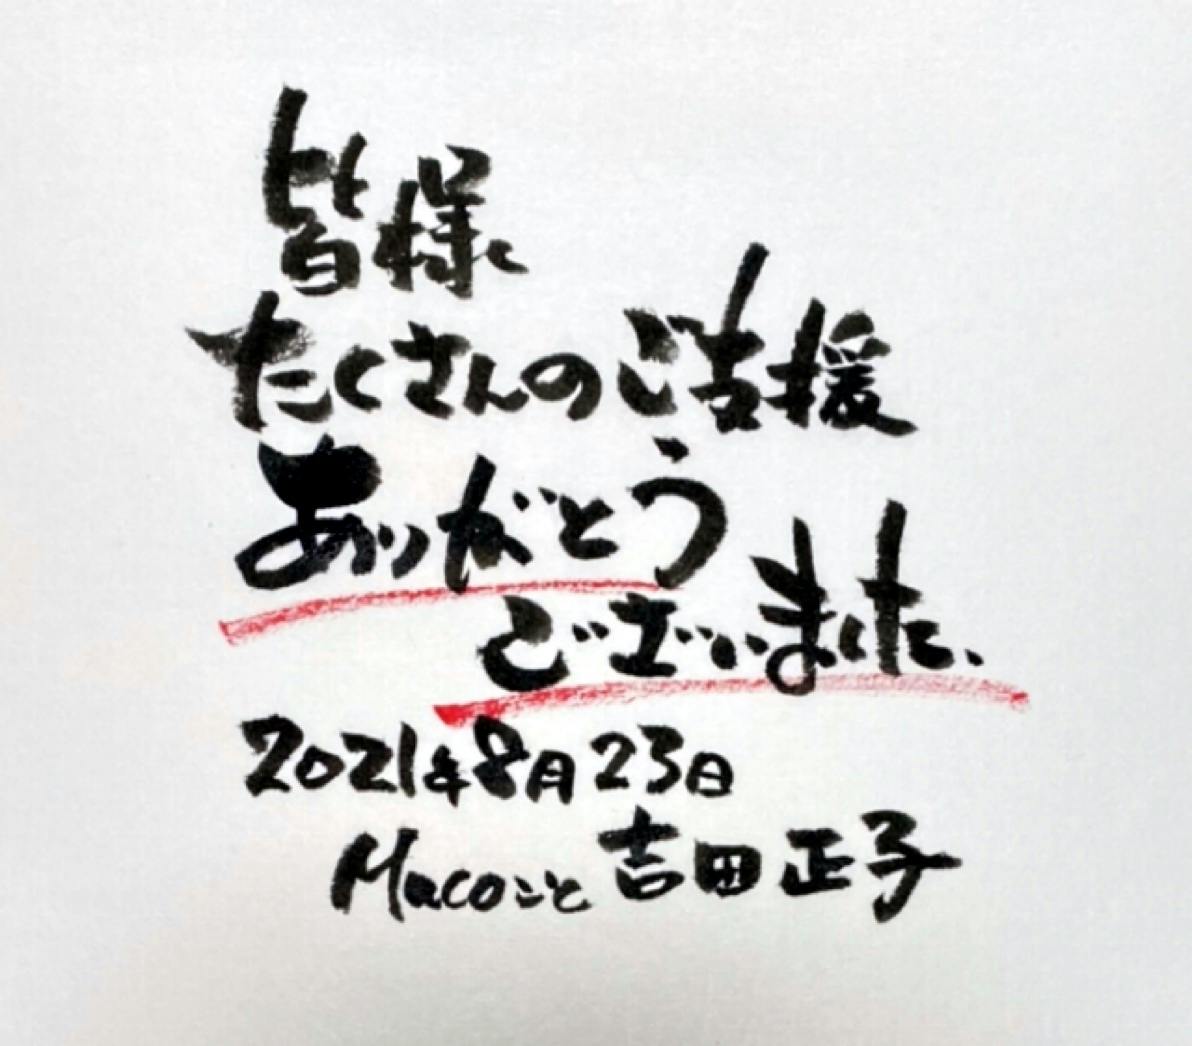 皆様
たくさんのご支援
ありがとう
ございました、
2021年8月23日
Macoこと 吉田正子